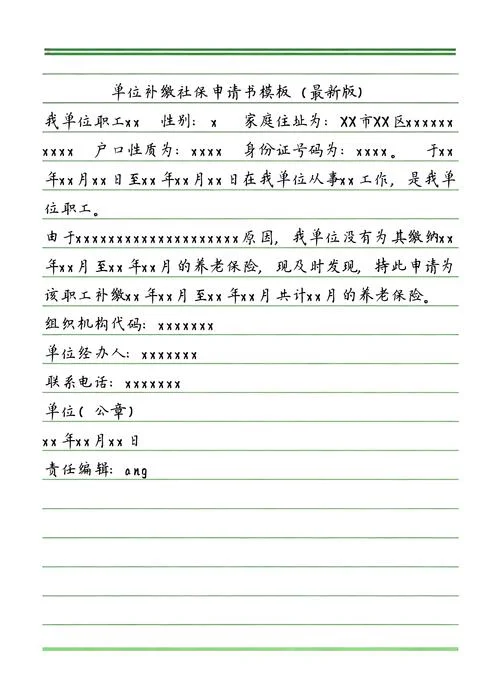 单位补缴社保申请书模板（最新版）
我单位职工xx 性别：x 家庭住址为：XX市XX区xxxxxx
xxxx 户口性质为：xxxx 身份证号码为：xxxx。 于xx
年xx月xx日至xx年xx月xx日在我单位从事xx工作，是我单
位职工。
由于xxxxxxxxxxxxxxxxxxxx原因，我单位没有为其缴纳xx
年xx月至xx年xx月的养老保险，现及时发现，特此申请为
该职工补缴xx年xx月至xx年xx月共计xx月的养老保险。
组织机构代码：xxxxxxx
单位经办人：xxxxxxx
联系电话：xxxxxxx
单位（公章）
xx年xx月xx日
责任编辑：ang